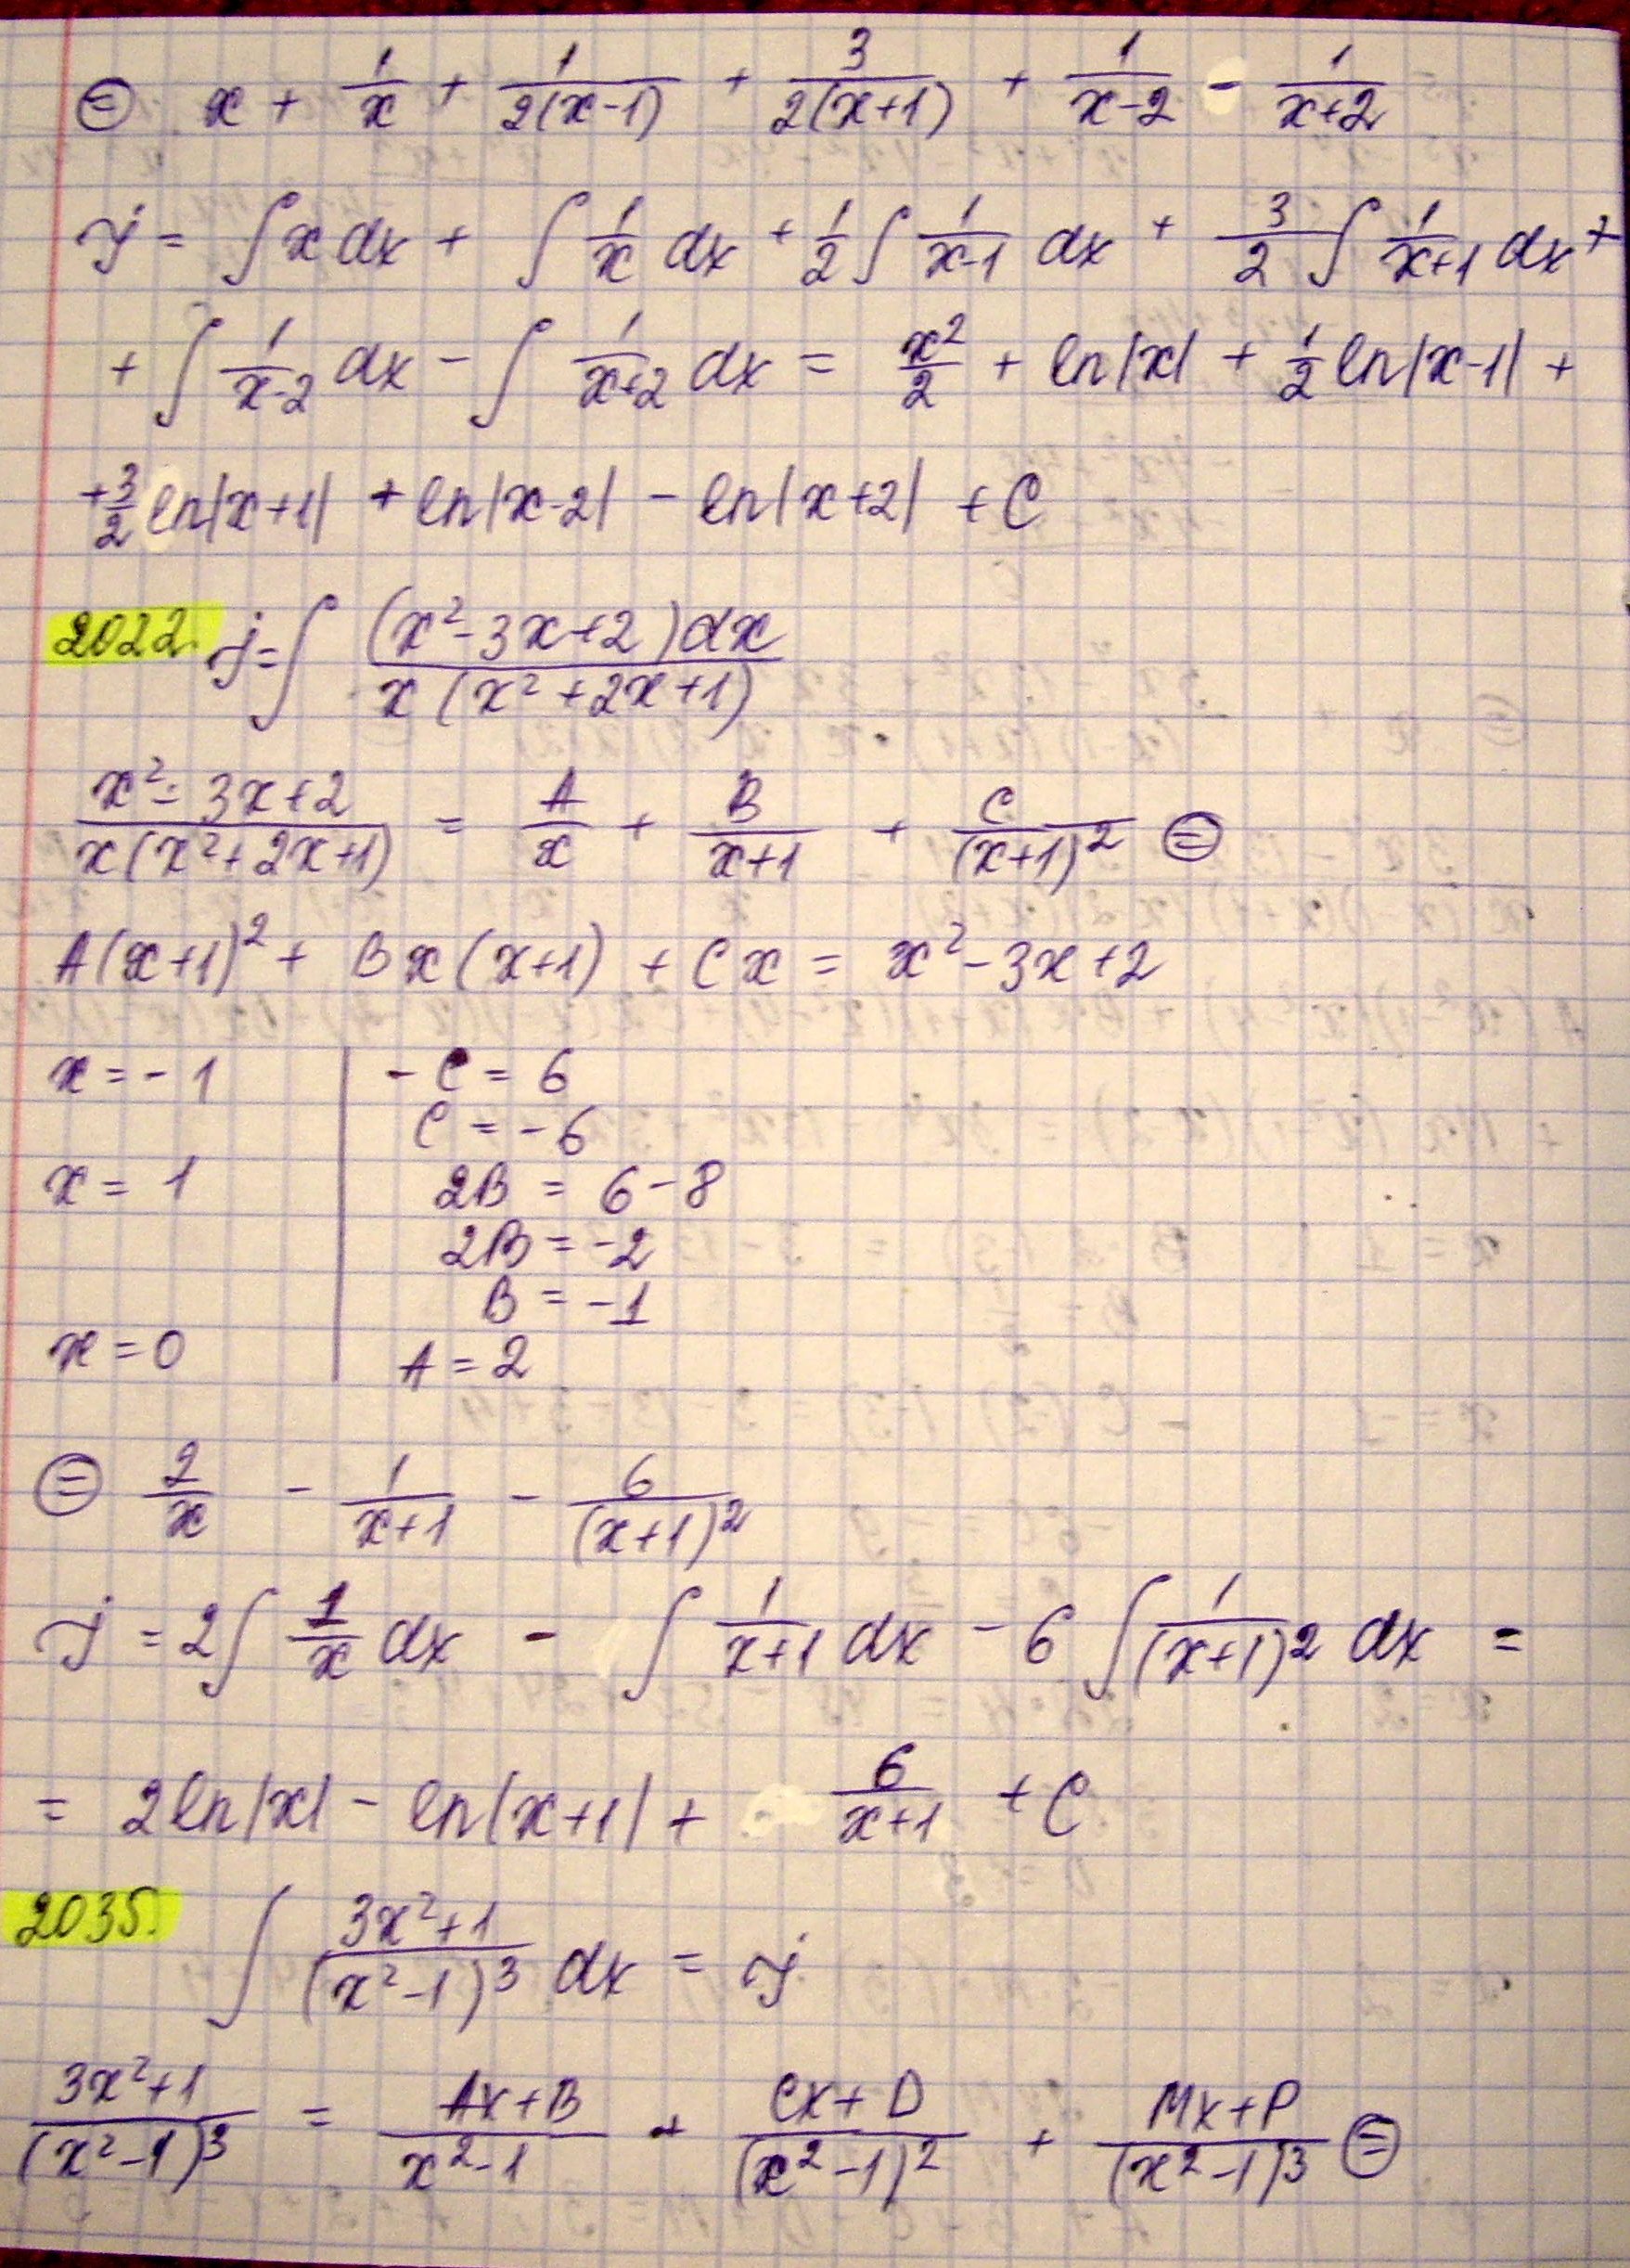 ⊜ x + 1/x + 1/(2(x-1)) + 3/(2(x+1)) + 1/(x-2) - 1/(x+2)
j = ∫ x dx + ∫ 1/x dx + 1/2 ∫ 1/(x-1) dx + 3/2 ∫ 1/(x+1) dx +
+ ∫ 1/(x-2) dx - ∫ 1/(x+2) dx = x²/2 + ln|x| + 1/2 ln|x-1| +
+ 3/2 ln|x+1| + ln|x-2| - ln|x+2| + C
2022. j = ∫ (x²-3x+2)dx / (x(x²+2x+1))
(x²-3x+2)/(x(x²+2x+1)) = A/x + B/(x+1) + C/(x+1)² ⊜
A(x+1)² + Bx(x+1) + Cx = x²-3x+2
x = -1 | - C = 6
C = -6
x = 1 | 2B = 6 - 8
2B = -2
B = -1
x = 0 | A = 2
⊜ 2/x - 1/(x+1) - 6/(x+1)²
j = 2∫ 1/x dx - ∫ 1/(x+1) dx - 6 ∫ 1/(x+1)² dx =
= 2ln|x| - ln|x+1| + 6/(x+1) + C
2035. ∫ (3x²+1)/(x²-1)³ dx = j
(3x²+1)/(x²-1)³ = (Ax+B)/(x²-1) + (Cx+D)/(x²-1)² + (Mx+P)/(x²-1)³ ⊜